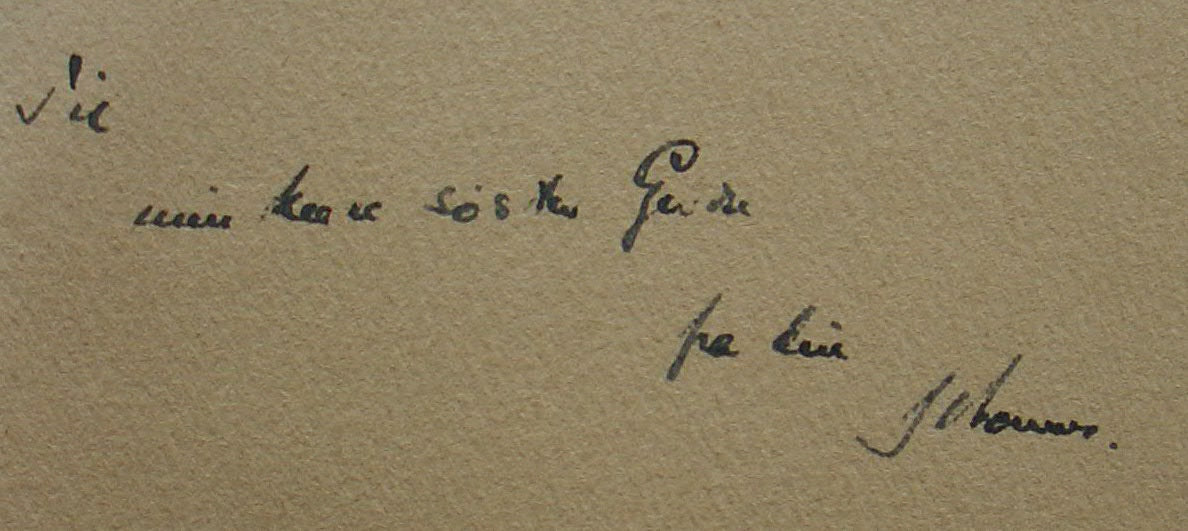 Til
min kære søster Gerda
fra din
Johannes.